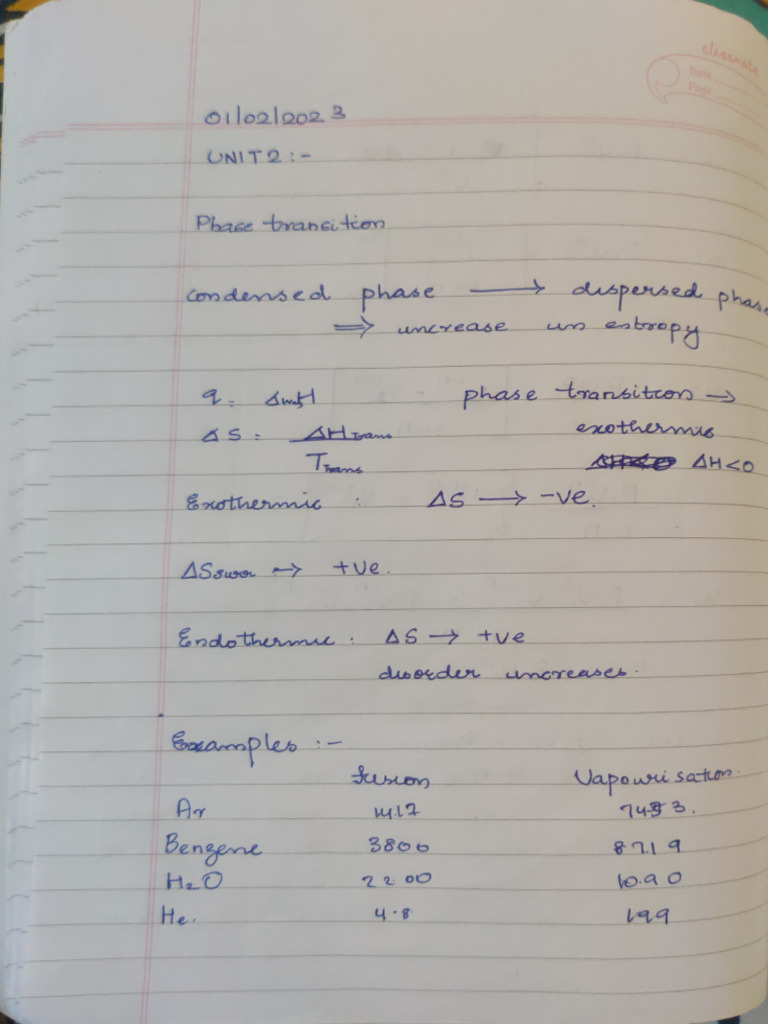 classmate
Date
Page
01/02/2023
UNIT 2 :-
Phase transition
condensed phase ⟶ dispersed phase
⟹ increase in estropy
q = ΔH phase transition →
ΔS = ΔHTrans / TTrans exothermic
ΔH<0
Exothermic : ΔS ⟶ -ve.
ΔSsurr → +ve.
Endothermic : ΔS → +ve
disorder increases.
Examples :-
fusion Vapourisation.
Ar 14.17 74.53.
Benzene 38.00 87.19
H2O 22.00 10.90
He. 4.8 199